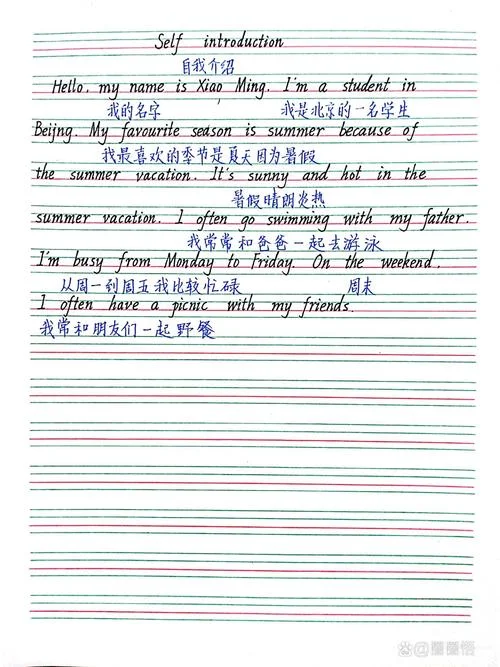 Self introduction
自我介绍
Hello, my name is Xiao Ming. I'm a student in
我的名字 我是北京的一名学生
Beijng. My favourite season is summer because of
我最喜欢的季节是夏天因为暑假
the summer vacation. It's sunny and hot in the
暑假晴朗炎热
summer vacation. I often go swimming with my father.
我常常和爸爸一起去游泳
I'm busy from Monday to Friday. On the weekend.
从周一到周五我比较忙碌 周末
I often have a picnic with my friends.
我常和朋友们一起野餐